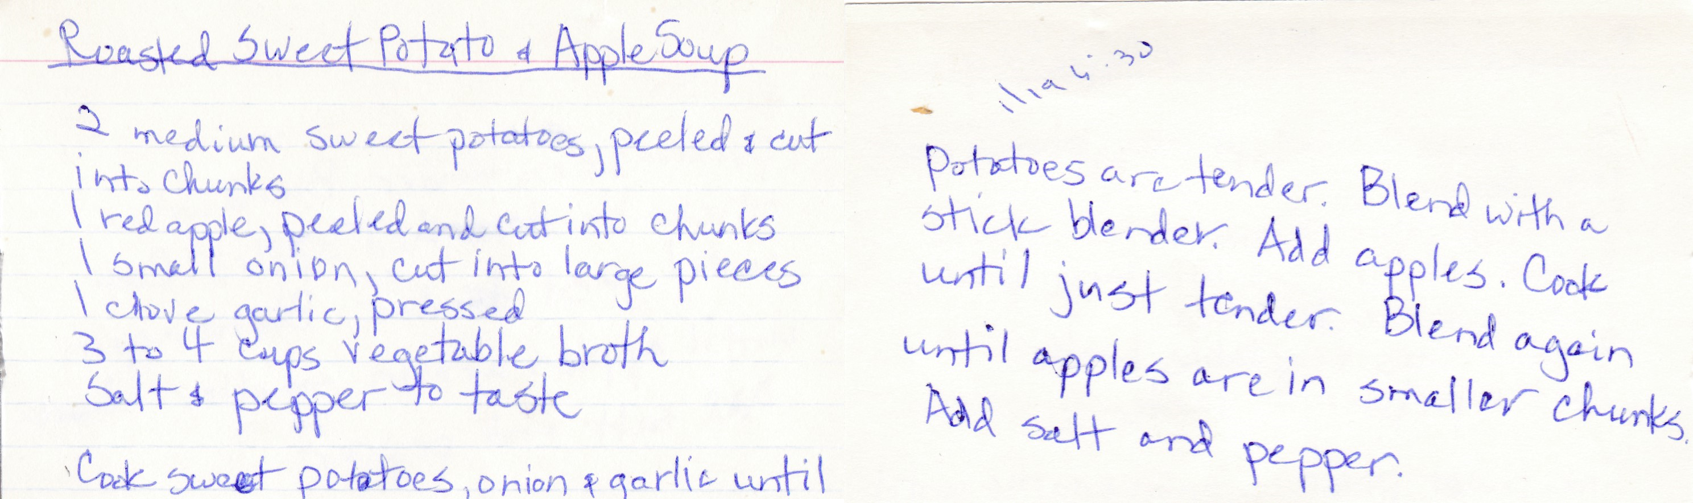 Roasted Sweet Potato & Apple Soup
2 medium sweet potatoes, peeled & cut
into chunks
1 red apple, peeled and cut into chunks
1 small onion, cut into large pieces
1 clove garlic, pressed
3 to 4 cups vegetable broth
Salt & pepper to taste
Cook sweet potatoes, onion & garlic until
4:30
potatoes are tender. Blend with a
stick blender. Add apples. Cook
until just tender. Blend again
until apples are in smaller chunks.
Add salt and pepper.